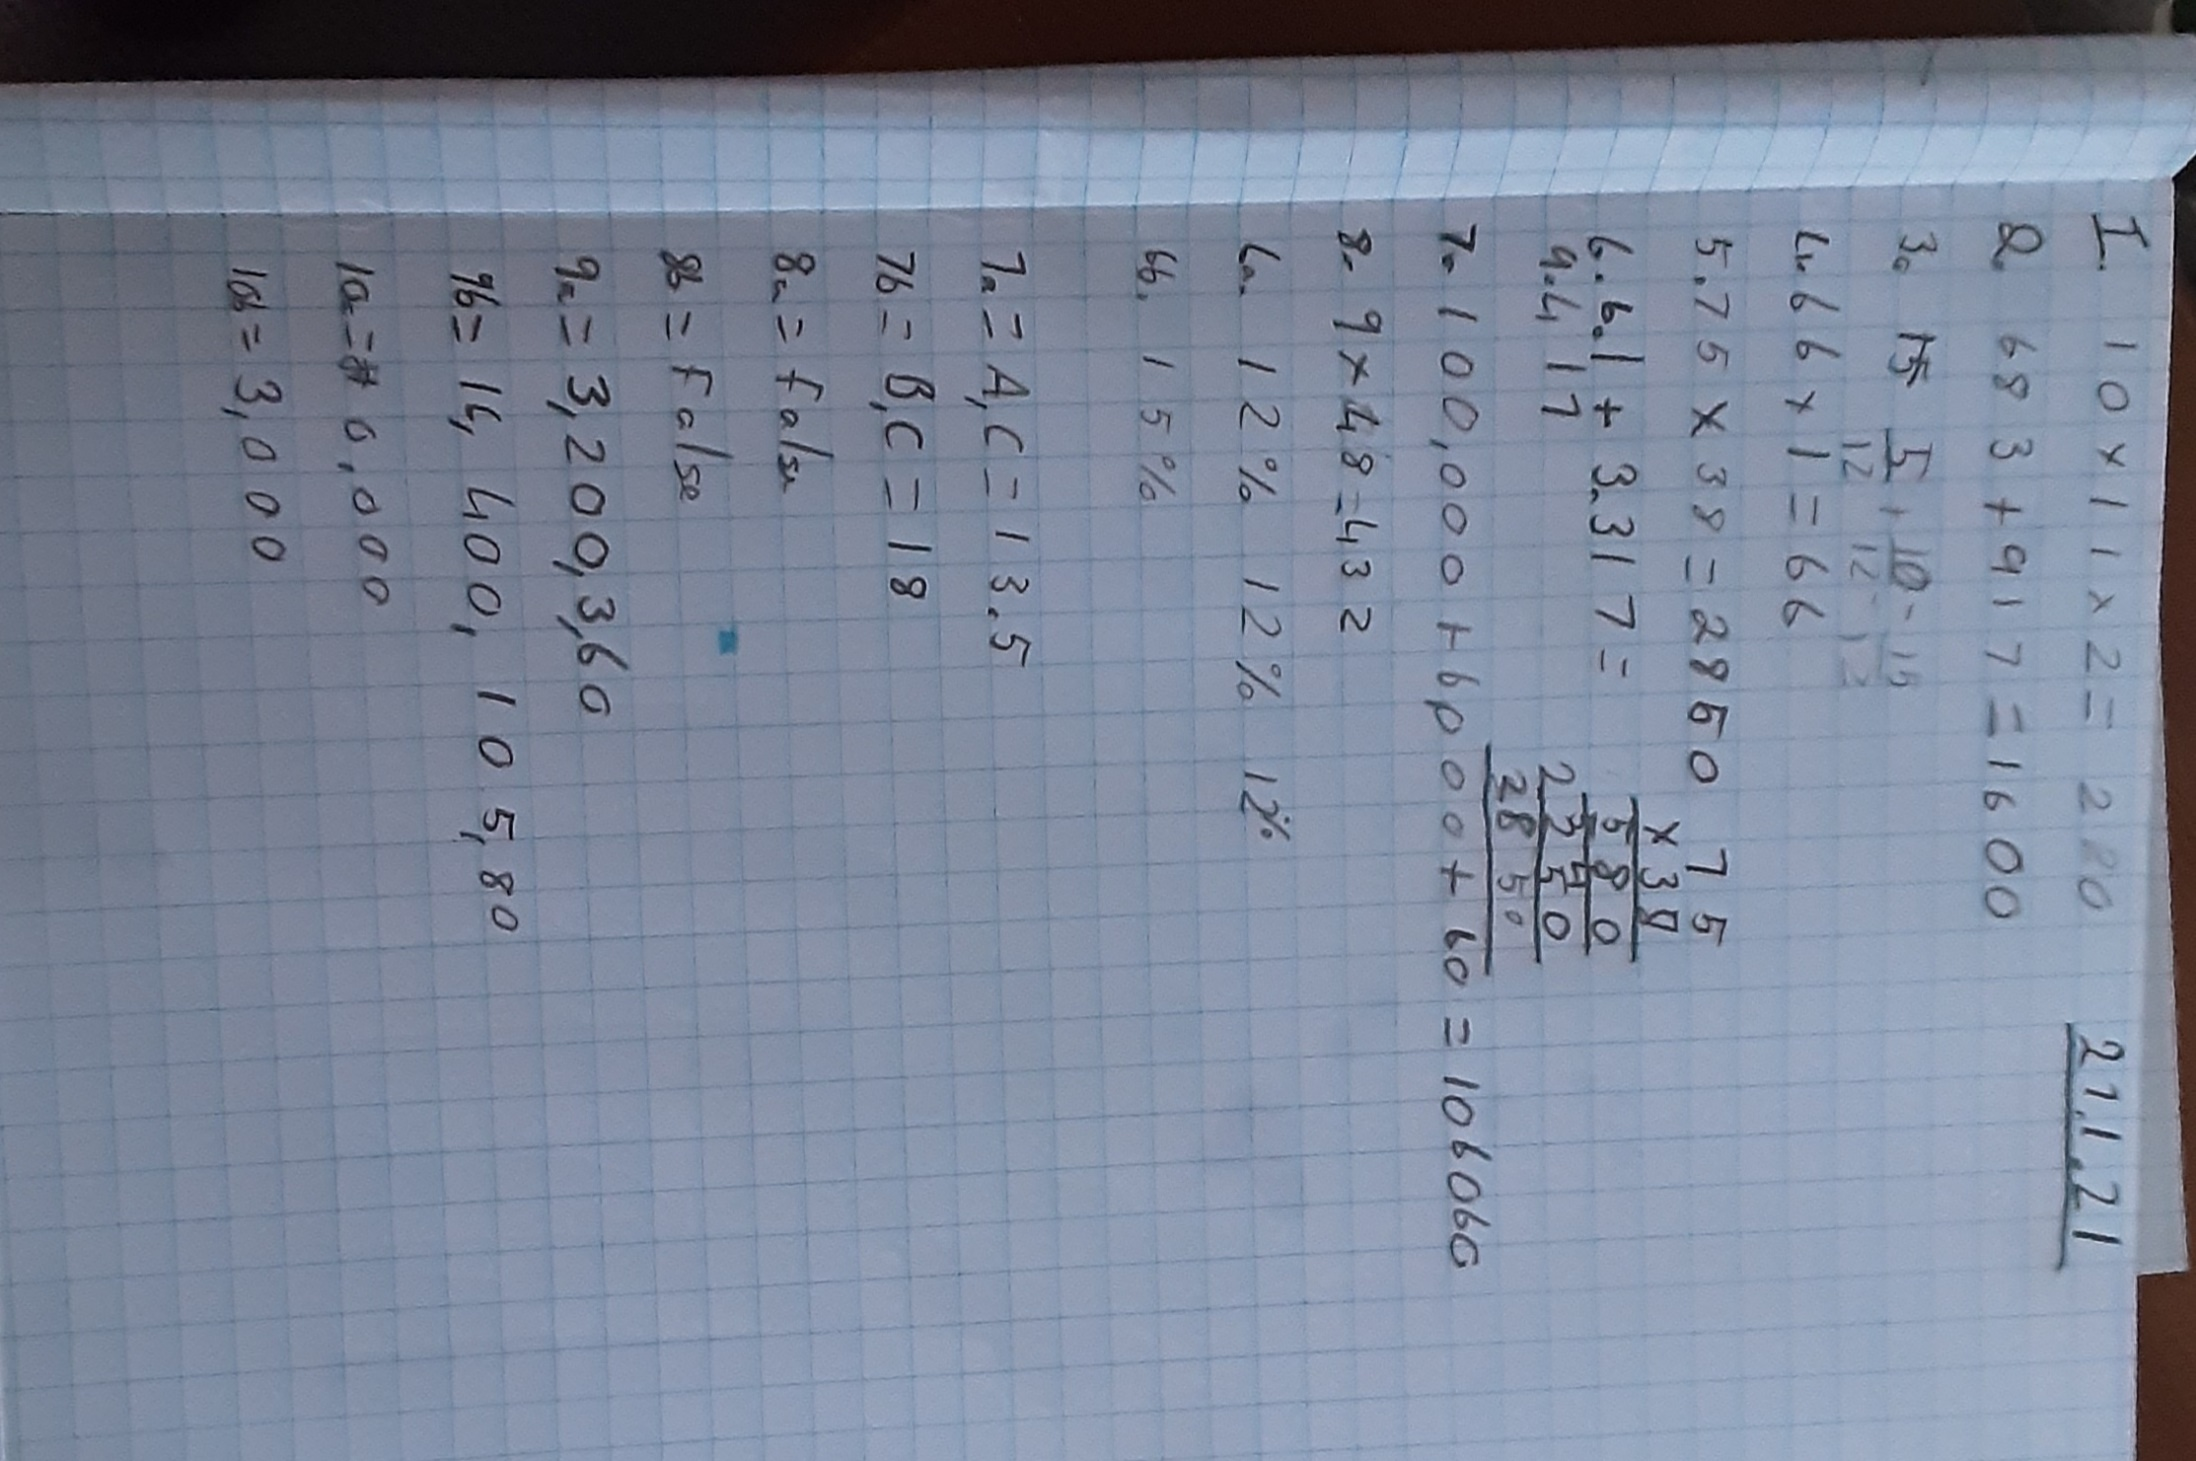 21.1.21
1. 10 x 11 x 2 = 220
2. 683 + 917 = 1600
3. 5/12 + 10/12 = 15/12
4. 66 x 1 = 66
5. 75 x 38 = 2850
75
x 38
580
2250
2850
6. 6.1 + 3.317 =
9.417
7. 100,000 + 6000 + 60 = 106060
8. 9 x 48 = 432
6a. 12% 12% 12%
6b. 15%
7a = A, C = 13.5
7b = B, C = 18
8a = false
8b = False
9a = 3,200,3,60
9b = 14, 400, 105,80
10a = 6,000
10b = 3,000